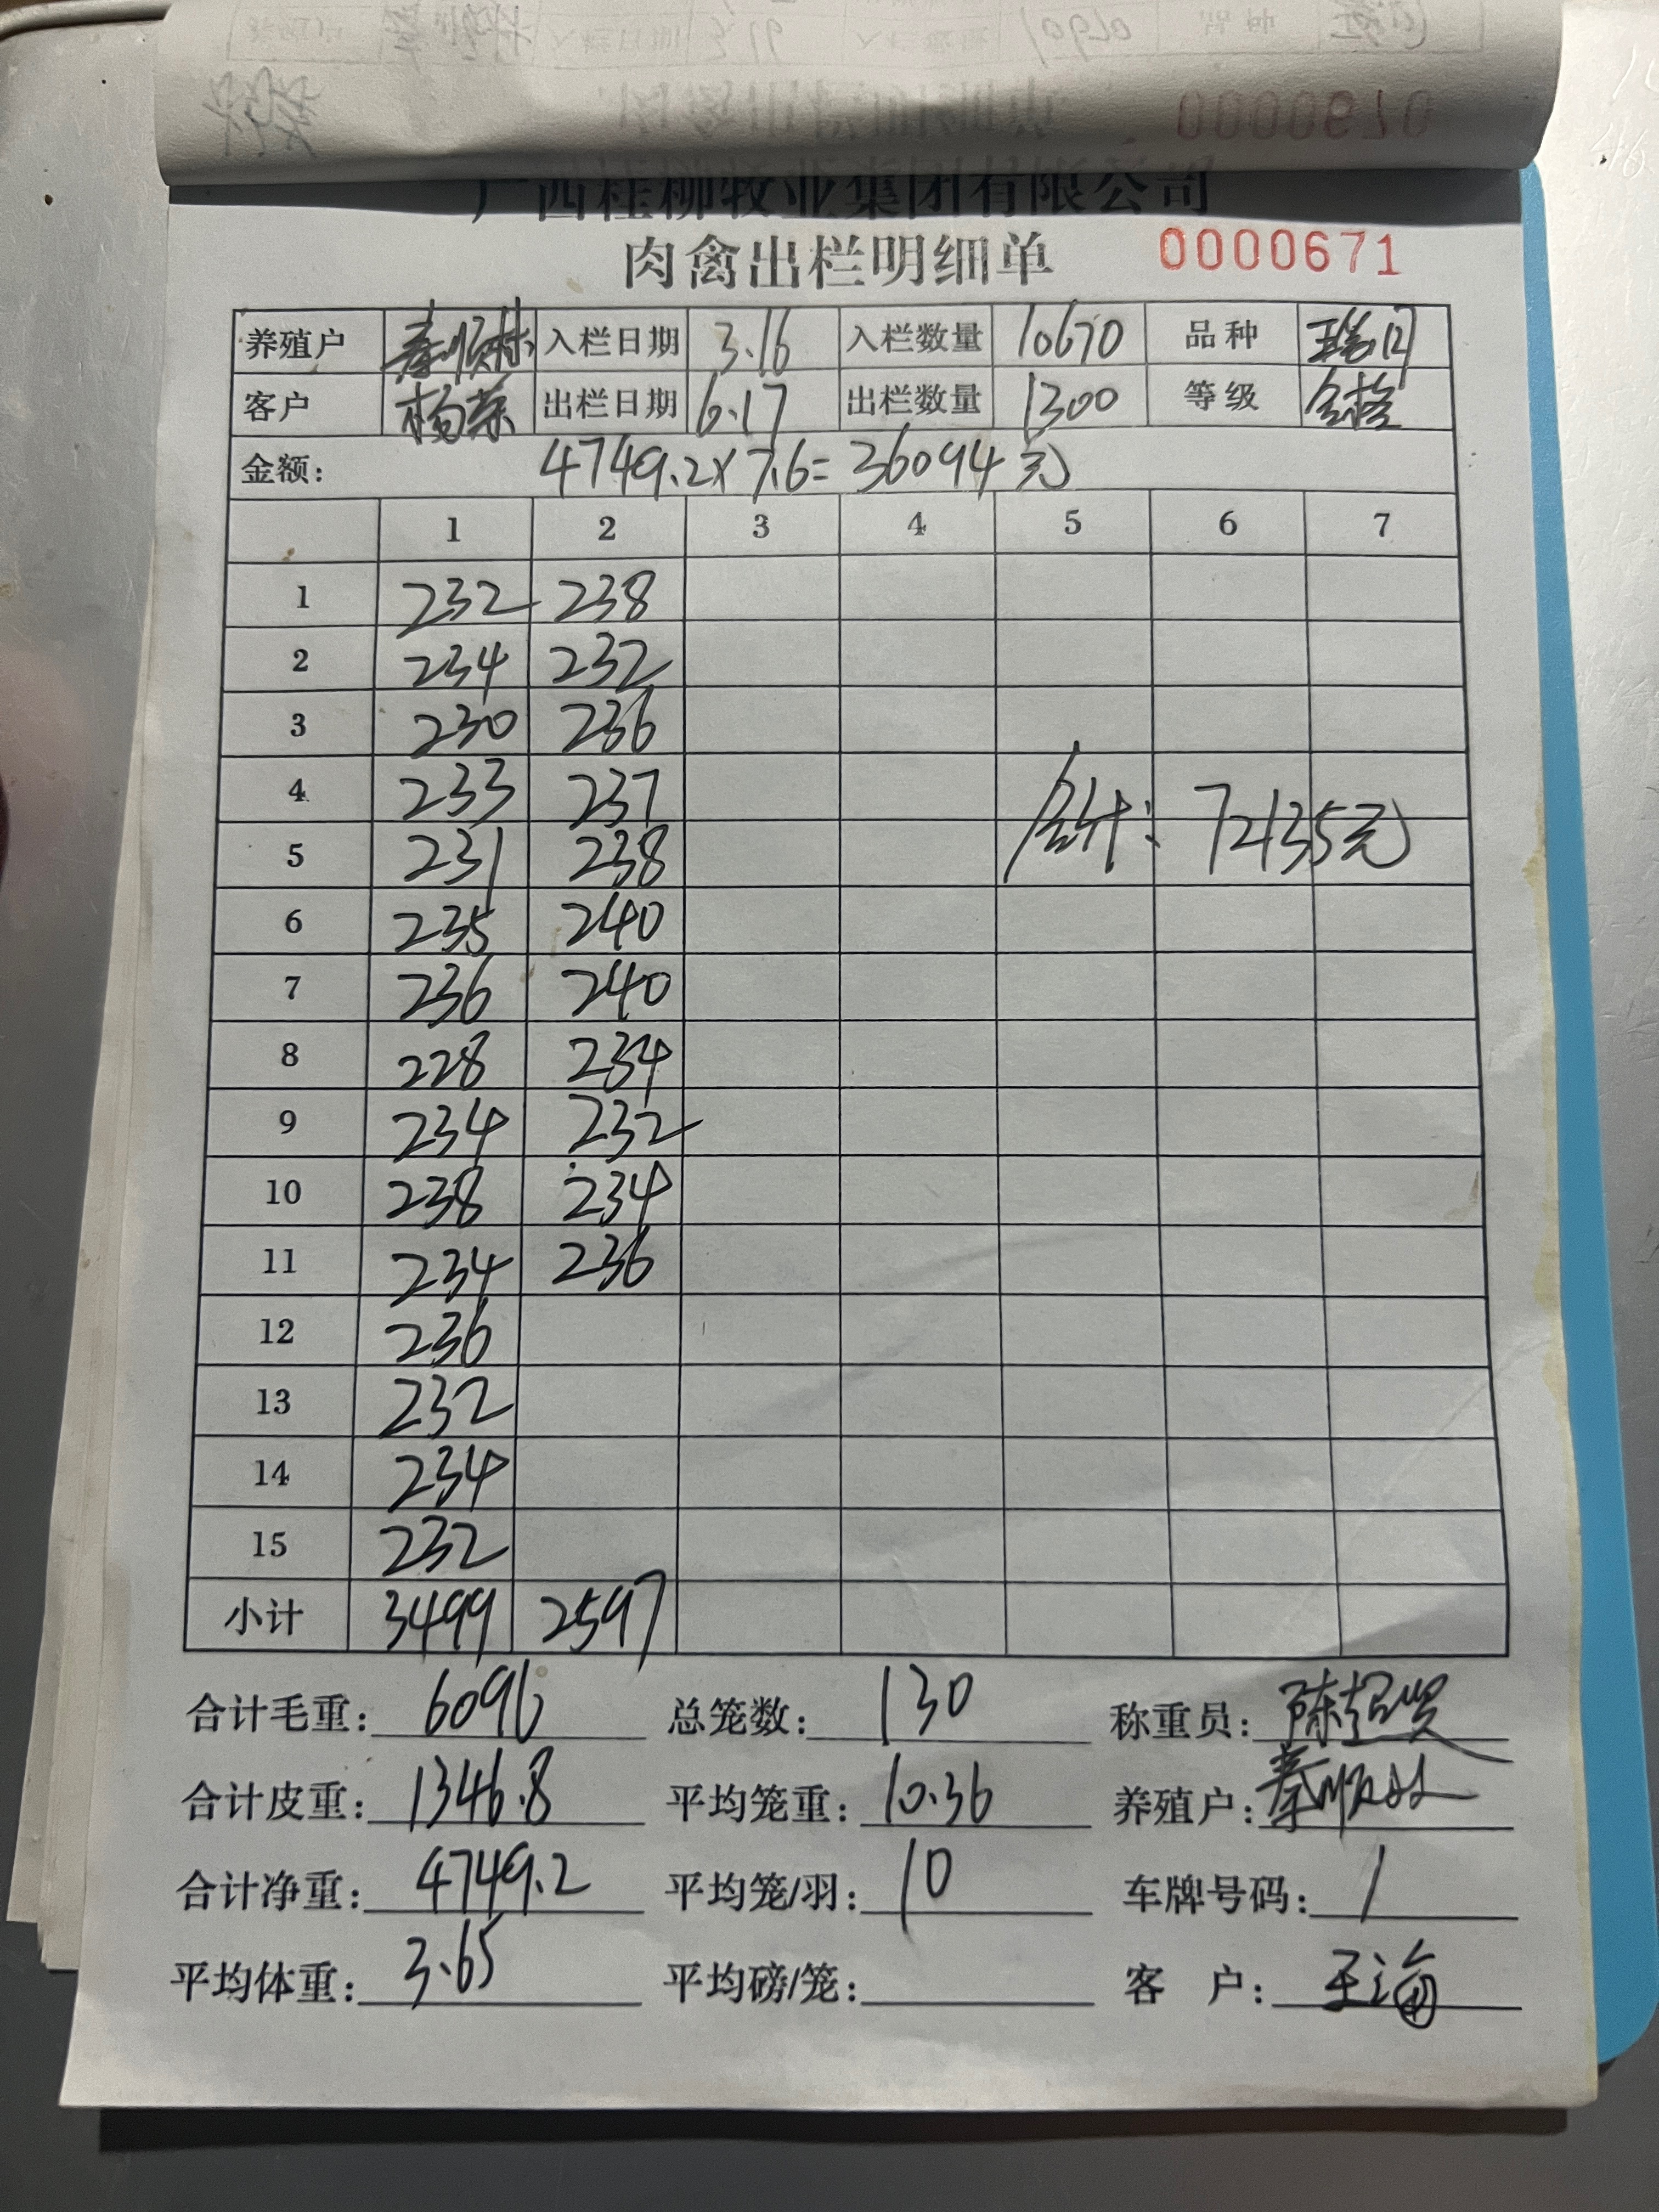 广西桂柳牧业集团有限公司
肉禽出栏明细单 0000671
养殖户 秦顺林 入栏日期 3.16 入栏数量 10670 品种
客户 杨荣 出栏日期 6.17 出栏数量 1300 等级 合格
金额: 4749.2x7.6=36094元
1 2 3 4 5 6 7
1 232 238
2 234 232
3 230 236
4 233 237
合计: 72135元
5 231 238
6 235 240
7 236 240
8 228 234
9 234 232
10 238 234
11 234 236
12 236
13 232
14 234
15 232
小计 3499 2597
合计毛重: 6096 总笼数: 130 称重员: 陈超贤
合计皮重: 1346.8 平均笼重: 10.36 养殖户: 秦顺林
合计净重: 4749.2 平均笼/羽: 10 车牌号码: 1
平均体重: 3.65 平均磅/笼: 客 户: 王海